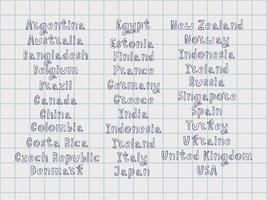 Argentina
Australia
Bangladesh
Belgium
Brazil
Canada
China
Colombia
Costa Rica
Czech Republic
Denmark
Egypt
Estonia
Finland
France
Germany
Greece
India
Indonesia
Ireland
Italy
Japan
New Zealand
Norway
Indonesia
Ireland
Russia
Singapore
Spain
Turkey
Ukraine
United Kingdom
USA